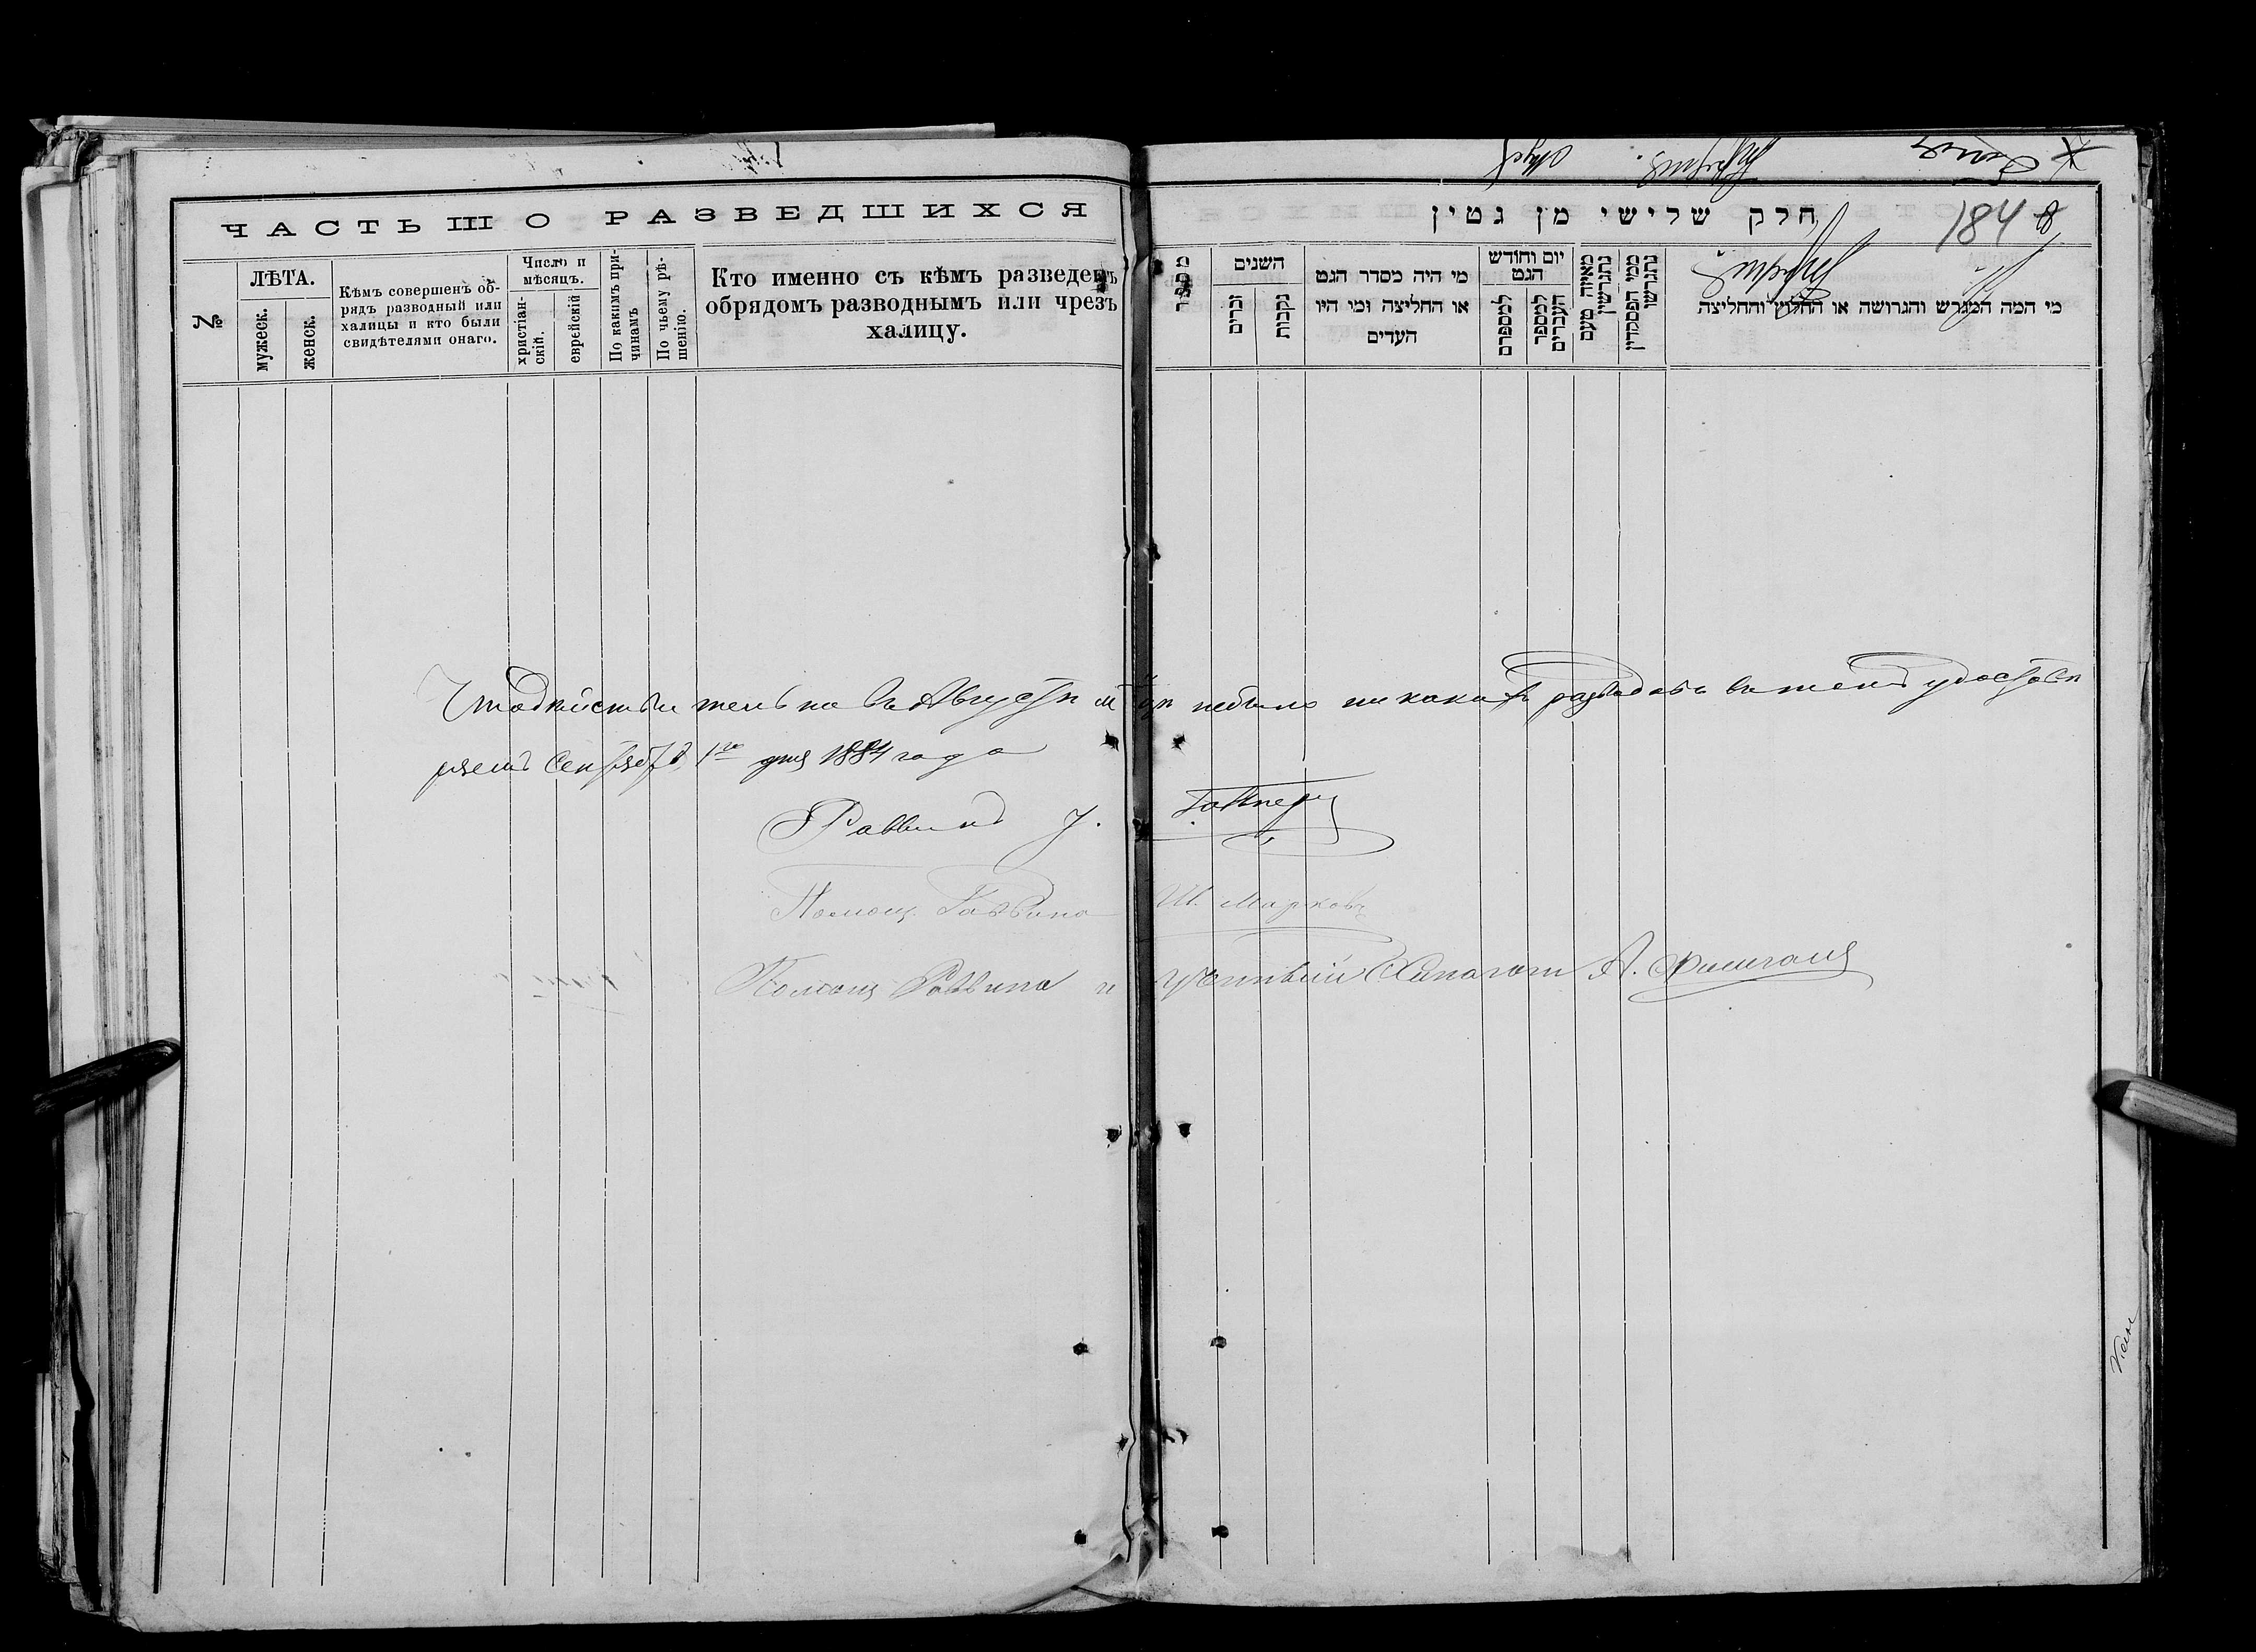 ЧАСТЬ III О РАЗВЕДШИХСЯ
№
ЛѢТА.
мужеск.
женск.
Кѣмъ совершенъ об-
рядъ разводный или
халицы и кто были
свидѣтелями онаго.
Число и
мѣсяцъ.
христіан-
скій.
еврейскій
По какимъ при-
чинамъ
По чьему рѣ-
шенію.
Кто именно съ кѣмъ разведенъ
обрядомъ разводнымъ или чрезъ
халицу.
חלק שלישי מן גטין
184
מספר
השנים
זכרים
נקבות
מי היה מסדר הגט
או החליצה ומי היו
העדים
יום וחודש
הגט
למספרם
למספר
העברים
מאיזה טעם
נתגרשו
ממי הפסק דין
נתגרשו
מי המה המגרש והגרושה או החלוץ והחליצה
Что действительно въ Августѣ м-цѣ небыло никакихъ разводовъ въ томъ удостовѣ
ряемъ Сентября 1го дня 1884 года
Раввинъ
Помощ. Раввина Ш. Марковъ
Помощ Раввина и